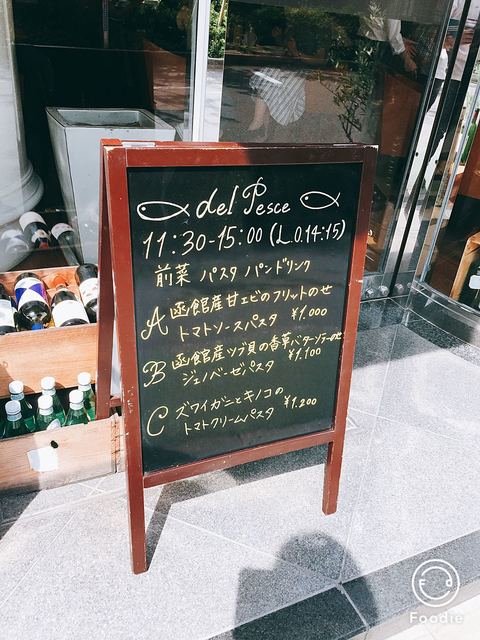 del Pesce
11:30-15:00 (L.O.14:15)
前菜 パスタ パンドリンク
A 函館産甘エビのフリットのせ
トマトソースパスタ ¥1.000
B 函館産ツブ貝の香草バターソテーのせ
ジェノベーゼパスタ ¥1.100
C ズワイガニとキノコの
トマトクリームパスタ ¥1.200
Foodie